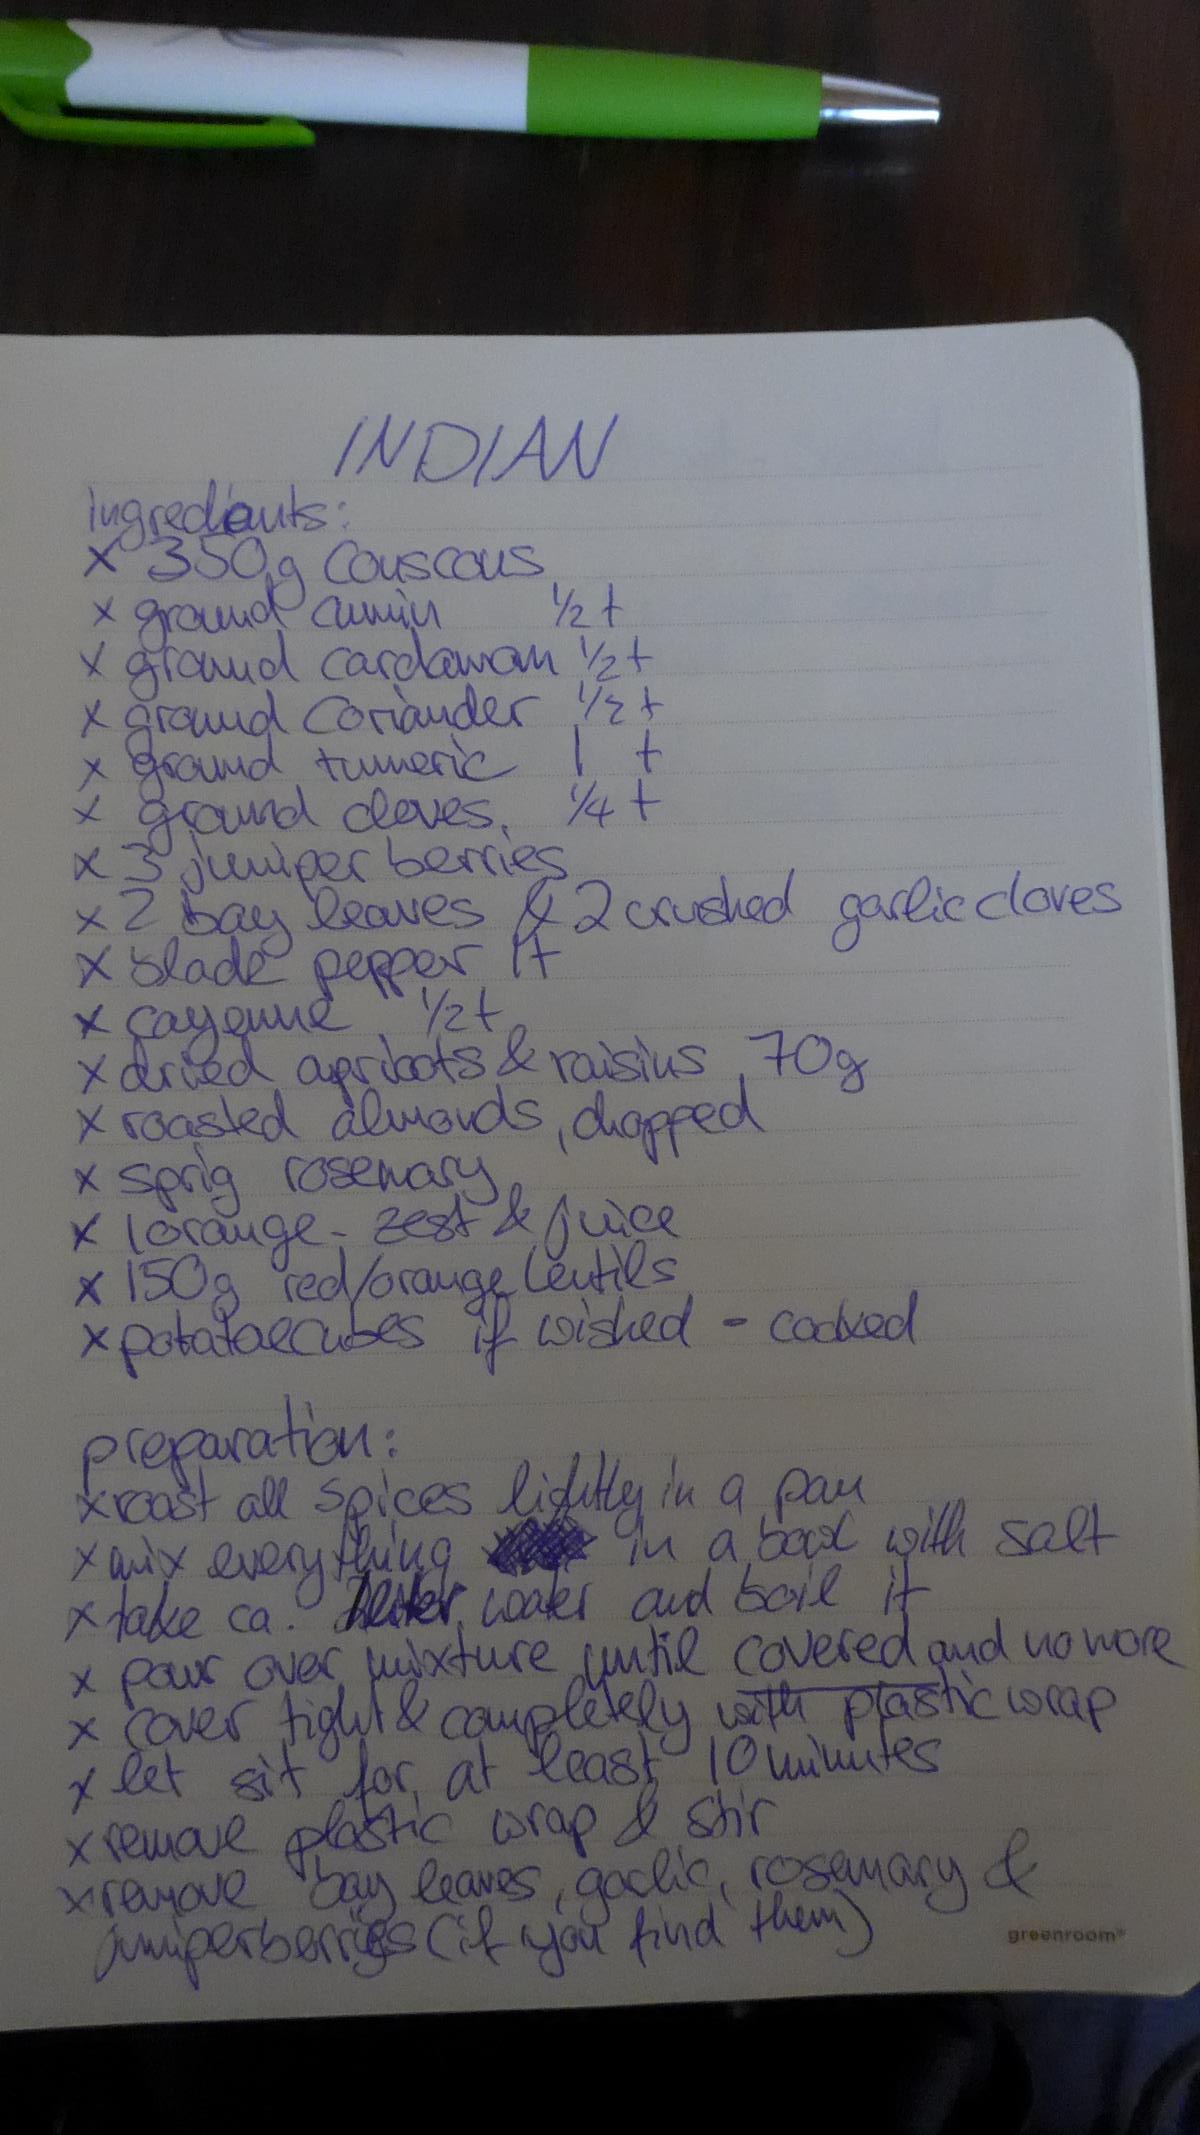 INDIAN
Ingredients:
x 350g couscous
x ground cumin 1/2 t
x ground cardamom 1/2 t
x ground coriander 1/2 t
x ground tumeric 1 t
x ground cloves. 1/4 t
x 3 juniper berries
x 2 bay leaves & 2 crushed garlic cloves
x black pepper 1t
x cayenne 1/2 t
x dried apricots & raisins 70g
x roasted almonds, chopped
x sprig rosemary
x 1 orange - zest & juice
x 150g red/orange lentils
x potatoecubes if wished - cooked
preparation:
x roast all spices lightly in a pan
x mix everything in a bowl with salt
x take ca. water and boil it
x pour over mixture until covered and no more
x cover tight & completely with plastic wrap
x let sit for at least 10 minutes
x remove plastic wrap & stir
x remove bay leaves, garlic, rosemary &
juniperberries (if you find them)
greenroom®